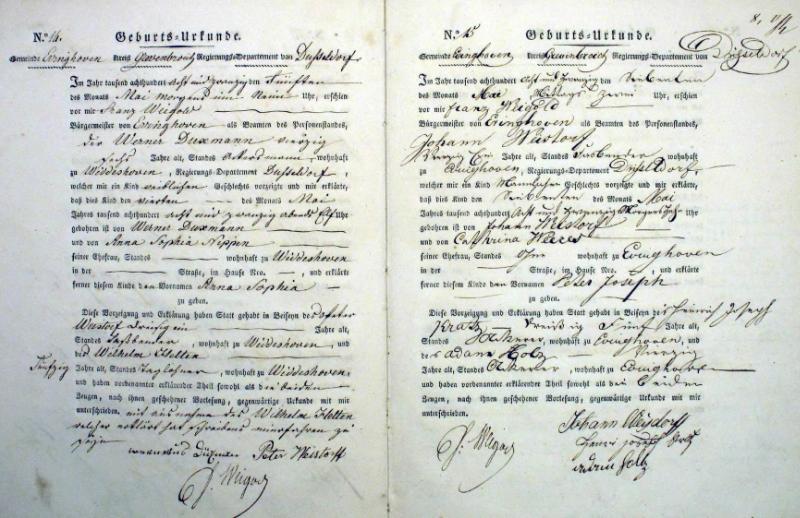 N.º 14. Geburts-Urkunde.
Gemeinde Evinghoven Kreis Grevenbroich Regierungs-Departement von Düsseldorf
Im Jahr tausend achthundert acht und zwanzig den Fünften
des Monats Mai morgens um Neun Uhr, erschien
vor mir Franz Weigold
Bürgermeister von Evinghoven als Beamten des Personenstandes,
der Werner Duxmann vierzig
sechs Jahre alt, Standes Ackersmann wohnhaft
zu Widdeshoven, Regierungs-Departement Düsseldorf,
welcher mir ein Kind weiblichen Geschlechts vorzeigte und mir erklärte,
daß dies Kind den vierten des Monats Mai
Jahres tausend achthundert acht und zwanzig abends Elf Uhr
gebohren ist von Werner Duxmann
und von Anna Sophia Nippen
seiner Ehefrau, Standes wohnhaft zu Widdeshoven
in der Straße, im Hause Nro. , und erklärte
ferner diesem Kinde den Vornamen Anna Sophia
zu geben.
Diese Vorzeigung und Erklärung haben Statt gehabt in Beiseyn des Peter
Weistorf dreißig ein Jahre alt,
Standes Faßbender, wohnhaft zu Widdeshoven, und
des Wilhelm Hetten
Fünfzig Jahre alt, Standes Taglohner, wohnhaft zu Widdeshoven
und haben vorbenannter erklärender Theil sowohl als die beiden
Zeugen, nach ihnen geschehener Vorlesung, gegenwärtige Urkunde mit mir
unterschrieben. mit Ausnahme des Wilhelm Hetten
welcher erklärt hat schreibens unerfahren zu
seyn
Peter Weistorff
N.º 15 Geburts-Urkunde.
Gemeinde Evinghoven Kreis Grevenbroich Regierungs-Departement von Düsseldorf
Im Jahr tausend achthundert Acht und Zwanzig den Siebenten
des Monats Mai Mittags Uhr, erschien
vor mir Franz Weigold
Bürgermeister von Evinghoven als Beamten des Personenstandes,
Johann Weistorf
Vierzig Jahre alt, Standes Fasbender wohnhaft
zu Evinghoven, Regierungs-Departement Düsseldorf,
welcher mir ein Kind Männlichen Geschlechts vorzeigte und mir erklärte,
daß dies Kind den Siebenten des Monats Mai
Jahres tausend achthundert Acht und Zwanzig Morgens Uhr
gebohren ist von Johann Weistorf
und von Cathrina
seiner Ehefrau, Standes Ohne wohnhaft zu Evinghoven
in der Straße, im Hause Nro. , und erklärte
ferner diesem Kinde den Vornamen Peter Joseph
zu geben.
Diese Vorzeigung und Erklärung haben Statt gehabt in Beiseyn des Heinrich Joseph
Kratz Dreißig Fünf Jahre alt,
Standes Ackerer, wohnhaft zu Evinghoven, und
des Adam Holz Vierzig
Jahre alt, Standes Ackerer, wohnhaft zu Evinghoven
und haben vorbenannter erklärender Theil sowohl als die Beiden
Zeugen, nach ihnen geschehener Vorlesung, gegenwärtige Urkunde mit mir
unterschrieben.
Johann
Joseph
adam Holz